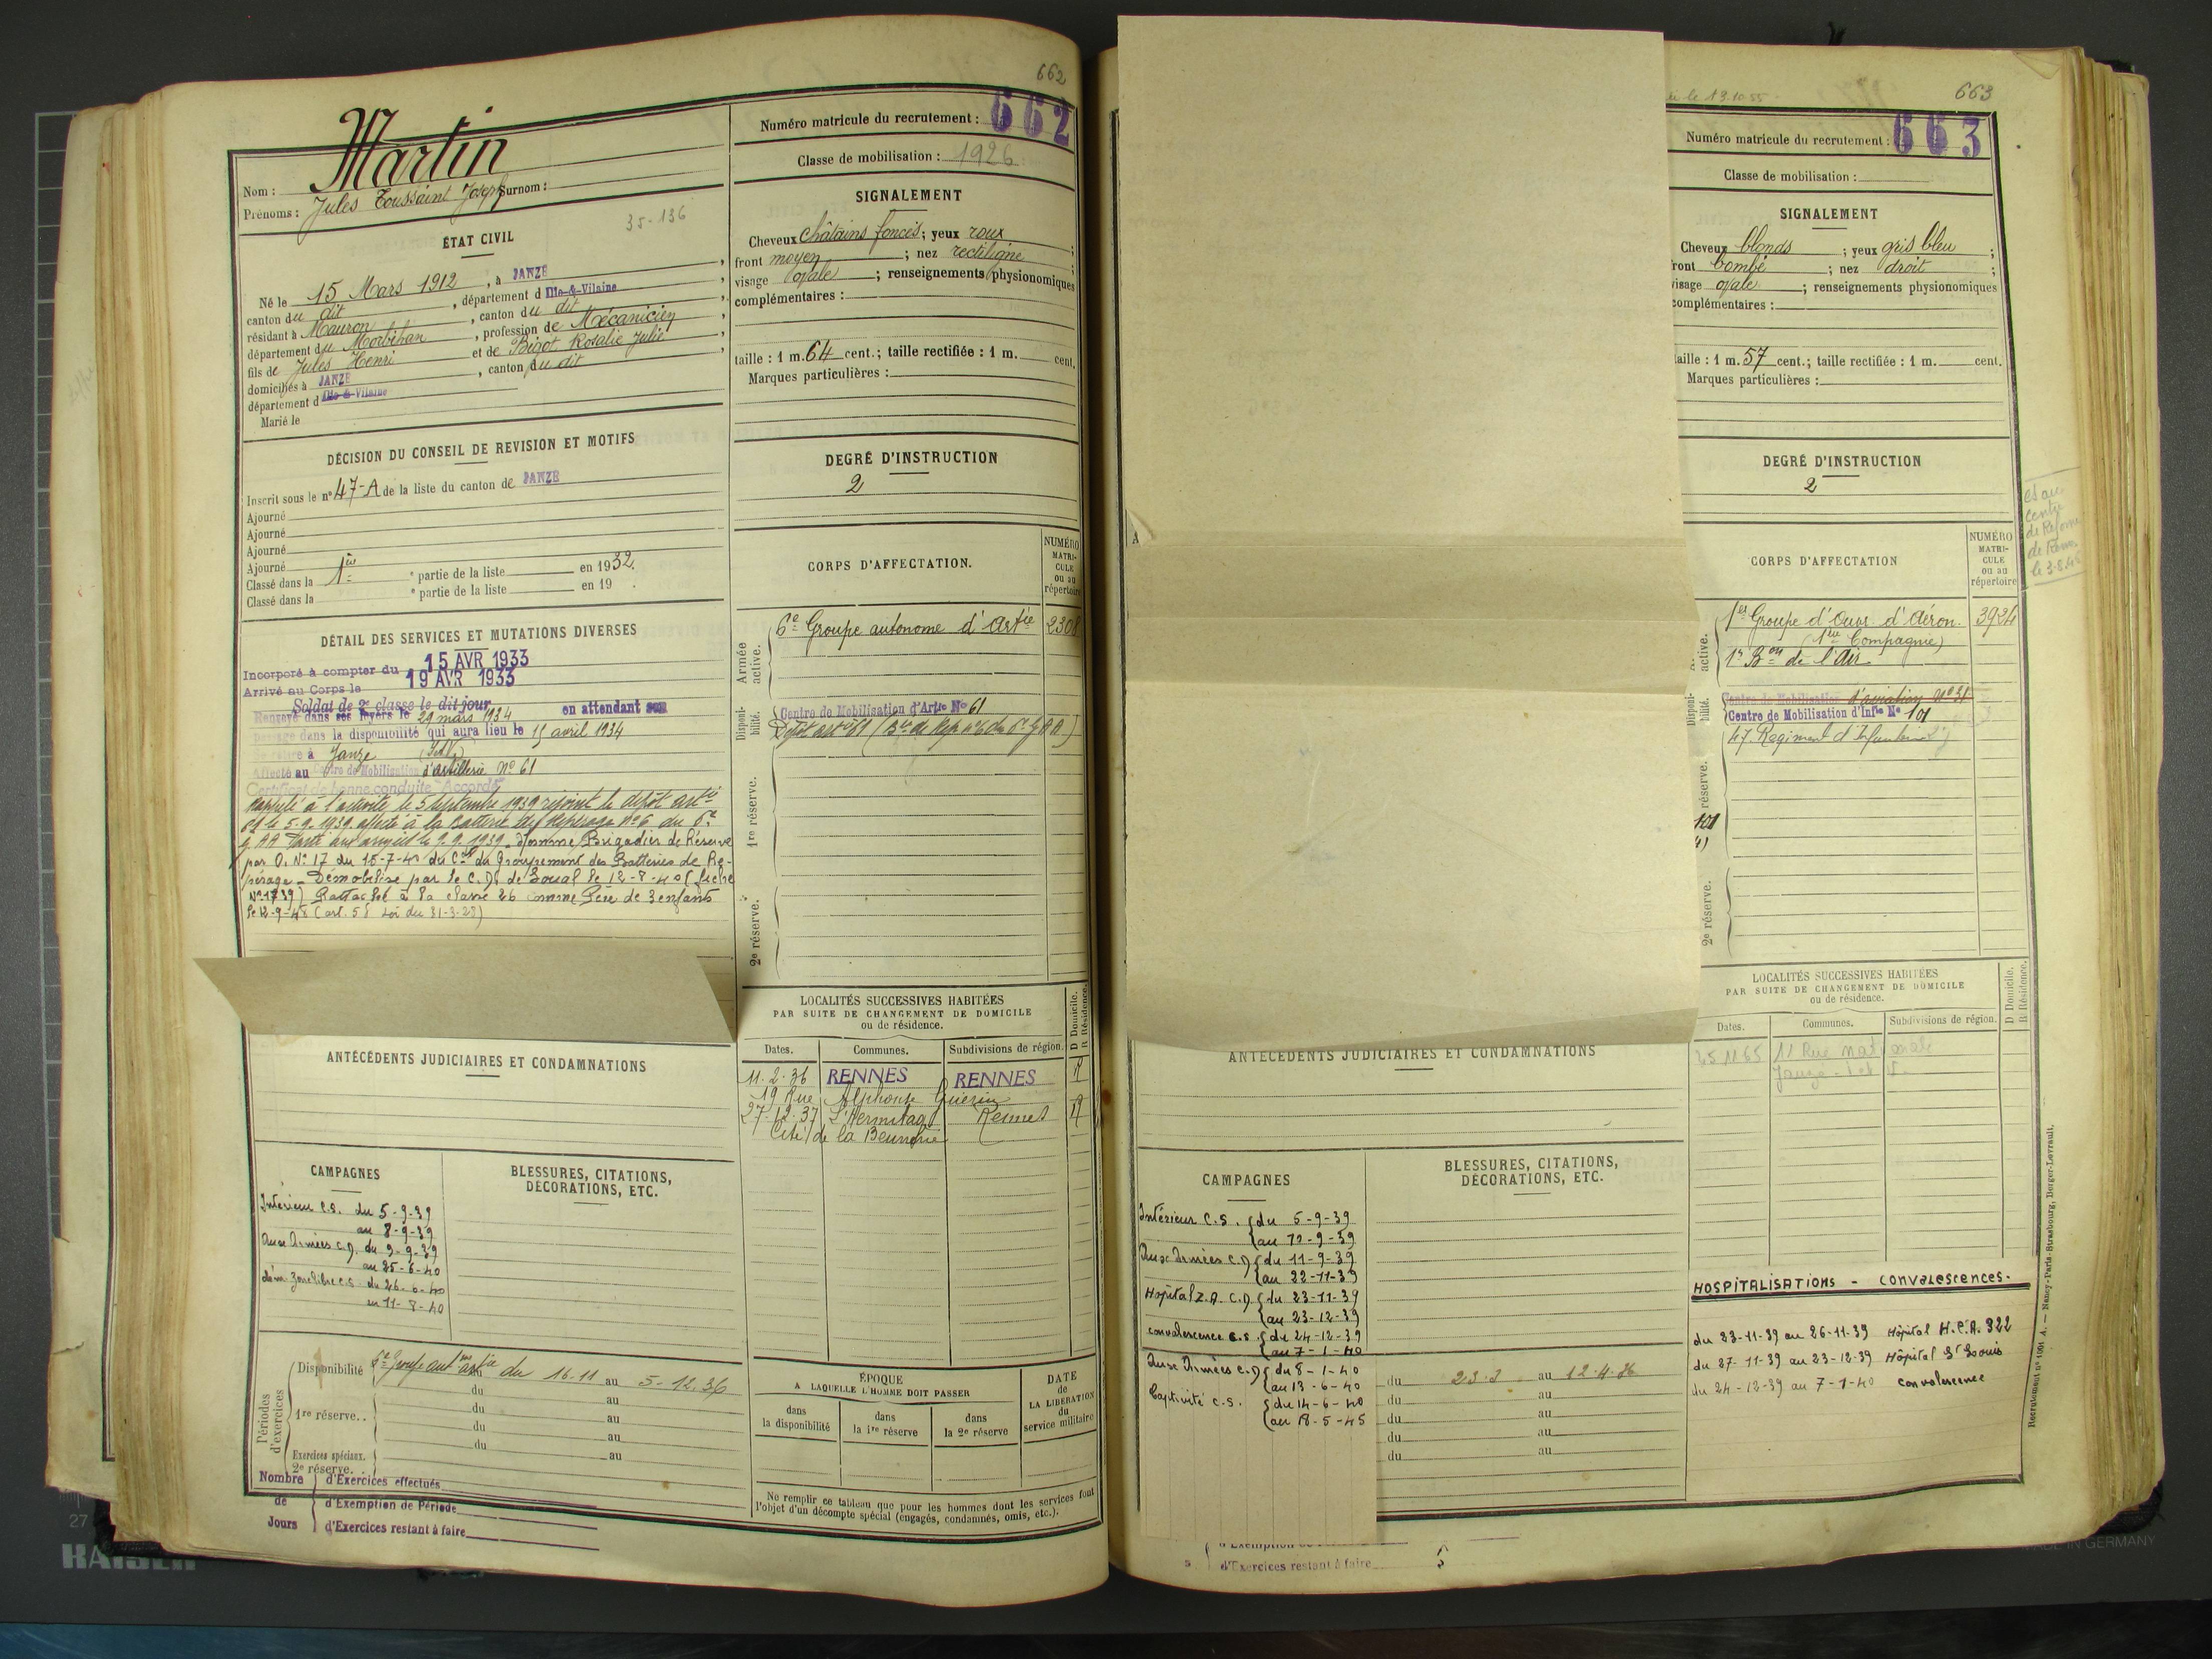 662
Numéro matricule du recrutement : 662
Classe de mobilisation : 1926
Nom : Martin
Prénoms : Jules Toussaint Joseph Surnom :
35-136
ÉTAT CIVIL
Né le 15 Mars 1912, à JANZÉ,
canton du dit, département d Ille-&-Vilaine,
résidant à Mauron, canton du dit,
département du Morbihan, profession de Mécanicien,
fils de Jules Henri et de Bigot Rosalie Julie,
domiciliés à JANZÉ, canton du dit,
département d Ille-&-Vilaine
Marié le
DÉCISION DU CONSEIL DE REVISION ET MOTIFS
Inscrit sous le n° 47-A de la liste du canton de JANZÉ
Ajourné
Ajourné
Ajourné
Ajourné
Classé dans la 1ère partie de la liste en 1932.
Classé dans la e partie de la liste en 19 .
DÉTAIL DES SERVICES ET MUTATIONS DIVERSES
Incorporé à compter du 15 AVR 1933
Arrivé au Corps le 19 AVR 1933
Soldat de 2e classe le dit jour
Renvoyé dans ses foyers le 29 mars 1934 en attendant son
passage dans la disponibilité qui aura lieu le 15 avril 1934
Se retire à Janzé (I et V.)
Affecté au Centre de Mobilisation d'artillerie N° 61
Certificat de bonne conduite "Accordé"
Rappelé à l'activité le 5 septembre 1939 rejoint le dépôt artie
61 le 5.9.1939 affecté à la Batterie de Repérage N°6 du 6e
g. AA Parti aux armées le 9.9.1939. Nommé Brigadier de Réserve
par O. N° 17 du 15-7-40 du Ct du Groupement des Batteries de Re-
pérage - Démobilisé par le C.D. de Soual le 12-8-40 (fiche
N° 1739) Rattaché à la classe 26 comme Père de 3 enfants
le 12-9-48 (art. 58 Loi du 31-3-28)
ANTÉCÉDENTS JUDICIAIRES ET CONDAMNATIONS
CAMPAGNES
BLESSURES, CITATIONS,
DÉCORATIONS, ETC.
Intérieur C.S. du 5-9-39
au 8-9-39
Aux Armées C.D. du 9-9-39
au 25-6-40
zone libre C.S. du 26-6-40
au 11-8-40
Périodes d'exercices
Disponibilité 6e Groupe autme artie du 16.11 au 5-12.36
du au
1re réserve.. du au
du au
du au
Exercices spéciaux. au
2e réserve.
Nombre de Jours
d'Exercices effectués
d'Exemption de Période
d'Exercices restant à faire
SIGNALEMENT
Cheveux châtains foncés; yeux roux;
front moyen; nez rectiligne;
visage ovale; renseignements physionomiques
complémentaires :
taille : 1 m. 64 cent.; taille rectifiée : 1 m. cent.
Marques particulières :
DEGRÉ D'INSTRUCTION
2
CORPS D'AFFECTATION.
NUMÉRO
MATRI-
CULE
ou au
répertoire
Armée active.
6e Groupe autonome d'Artie 2308
Disponibilité.
Centre de Mobilisation d'Artie N° 61
Dépôt art. 61 (Bie de Rep. n°6 du 6e g A A)
1re réserve.
2e réserve.
LOCALITÉS SUCCESSIVES HABITÉES
PAR SUITE DE CHANGEMENT DE DOMICILE
ou de résidence.
D Domicile.
R Résidence.
Dates. Communes. Subdivisions de région.
11.2.36 RENNES RENNES R
19 Rue Alphonse Guérin
27.12.37 L'Hermitage Rennes R
Cité de la
ÉPOQUE
A LAQUELLE L'HOMME DOIT PASSER
dans
la disponibilité
dans
la 1re réserve
dans
la 2e réserve
DATE
de
LA LIBÉRATION
du
service militaire
Ne remplir ce tableau que pour les hommes dont les services font
l'objet d'un décompte spécial (engagés, condamnés, omis, etc.).
le 13.10.55
663
Numéro matricule du recrutement : 663
Classe de mobilisation :
SIGNALEMENT
Cheveux blonds; yeux gris bleu;
front bombé; nez droit;
visage ovale; renseignements physionomiques
complémentaires :
taille : 1 m. 57 cent.; taille rectifiée : 1 m. cent.
Marques particulières :
DEGRÉ D'INSTRUCTION
2
centre
de Réforme
de Rennes
le 3.8.46
CORPS D'AFFECTATION
NUMÉRO
MATRI-
CULE
ou au
répertoire
active.
1er Groupe d'Ouvr. d'Aéron. 3924
(1re Compagnie)
1r Bon de l'Air
Disponibilité.
Centre de Mobilisation d'aviation N° 31
Centre de Mobilisation d'Infie N° 101
47. Régiment d'Infanterie
réserve.
101
2e réserve.
LOCALITÉS SUCCESSIVES HABITÉES
PAR SUITE DE CHANGEMENT DE DOMICILE
ou de résidence.
D Domicile.
R Résidence.
Dates. Communes. Subdivisions de région.
25.11.65 11 Rue Nationale
Janzé - I et V.
ANTÉCÉDENTS JUDICIAIRES ET CONDAMNATIONS
CAMPAGNES
BLESSURES, CITATIONS,
DÉCORATIONS, ETC.
Intérieur C.S. du 5-9-39
au 10-9-39
Aux Armées C.D. du 11-9-39
au 22-11-39
Hôpital Z.A. C.D. du 23-11-39
au 23-12-39
convalescence C.S. du 24-12-39
au 7-1-40
Aux Armées C.D. du 8-1-40
au 13-6-40
Captivité C.S. du 14-6-40
au 18-5-45
du 23.3 au 12.4.36
du au
du au
du au
du au
d'Exercices restant à faire
HOSPITALISATIONS - CONVALESCENCES.
du 23-11-39 au 26-11-39 Hôpital H.C.A. 322
du 27-11-39 au 23-12-39 Hôpital St Louis
du 24-12-39 au 7-1-40 convalescence
Recrutement n° 1001 A. — Nancy-Paris-Strasbourg, Berger-Levrault.
27
KAISER
MADE IN GERMANY